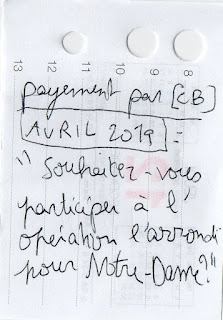 13 12 11 10 9 8
payement par [CB]
AVRIL 2019 =
"Souhaitez-vous
participer à l'
opération l'arrondi
pour Notre-Dame?"